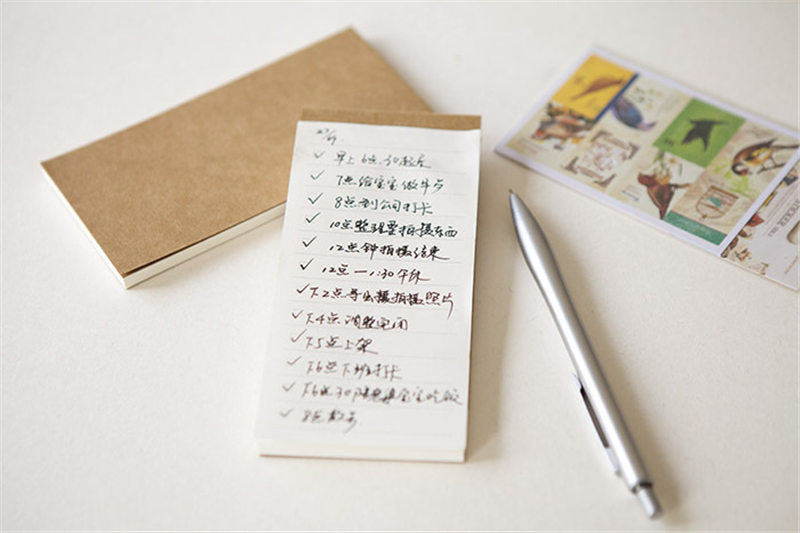 27/9
早上6点30起床
7点给宝宝做早点
8点到公司打卡
10点整理要拍摄东西
12点钟拍摄结束
12点-1:30午休
下2点导出拍摄照片
下4点调整
下5点上架
下6点下班打卡
下6点30陪宝宝吃饭
8点散步